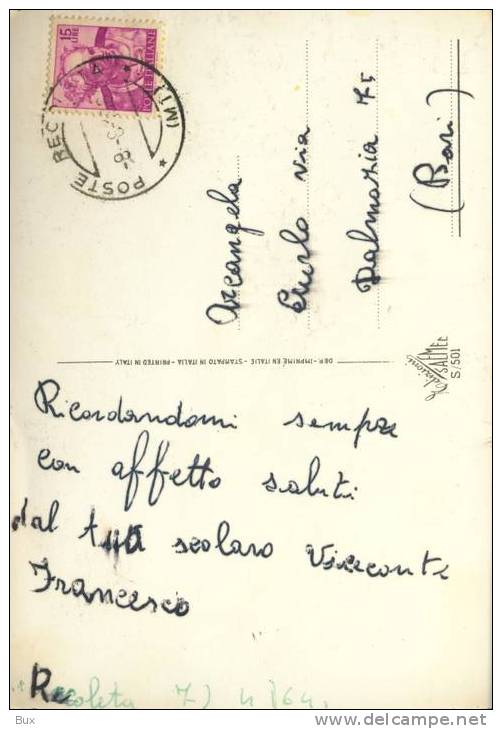 15
LIRE
POSTE ITALIANE
POSTE REC
(MT)
Arcangela
Gurlo via
Dalmazia 75
(Bari)
DER - IMPRIMÉ EN ITALIE - STAMPATO IN ITALIA - PRINTED IN ITALY
Edizioni
SAEMEC
S/501
Ricordandomi sempre
con affetto saluti
dal tuo scolaro Viceconte
Francesco
Recoleta 7) 4/64.
Bux
http://bux.delcampe.net